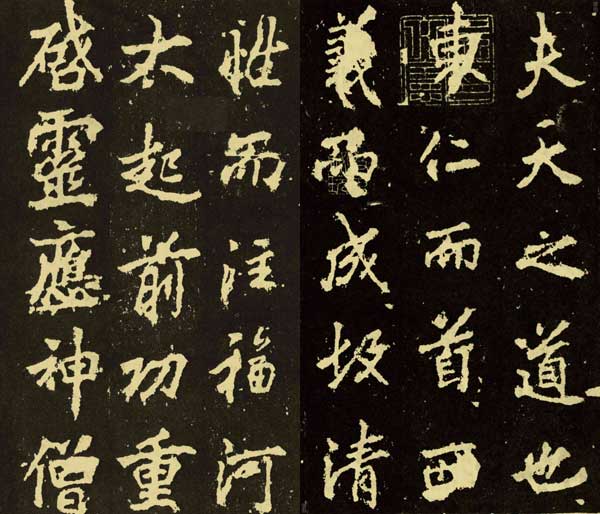 夫天之道也
東仁而首西
義而成故清
性而注福河
太起前功重
啓靈應神僧